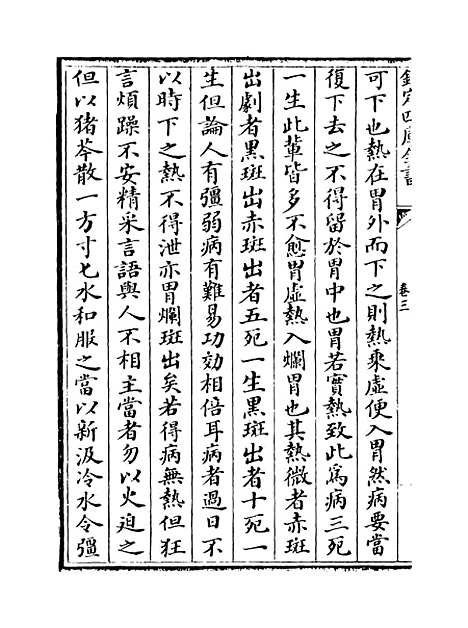 欽定四庫全書
卷三
可下也熱在胃外而下之則熱乘虛便入胃然病要當
復下去之不得留於胃中也胃若實熱致此為病三死
一生此輩皆多不愈胃虛熱入爛胃也其熱微者赤斑
出劇者黑斑出赤斑出者五死一生黑斑出者十死一
生但論人有彊弱病有難易功効相倍耳病者過日不
以時下之熱不得泄亦胃爛斑出矣若得病無熱但狂
言煩躁不安精采言語與人不相主當者勿以火迫之
但以猪苓散一方寸匕水和服之當以新汲冷水令彊